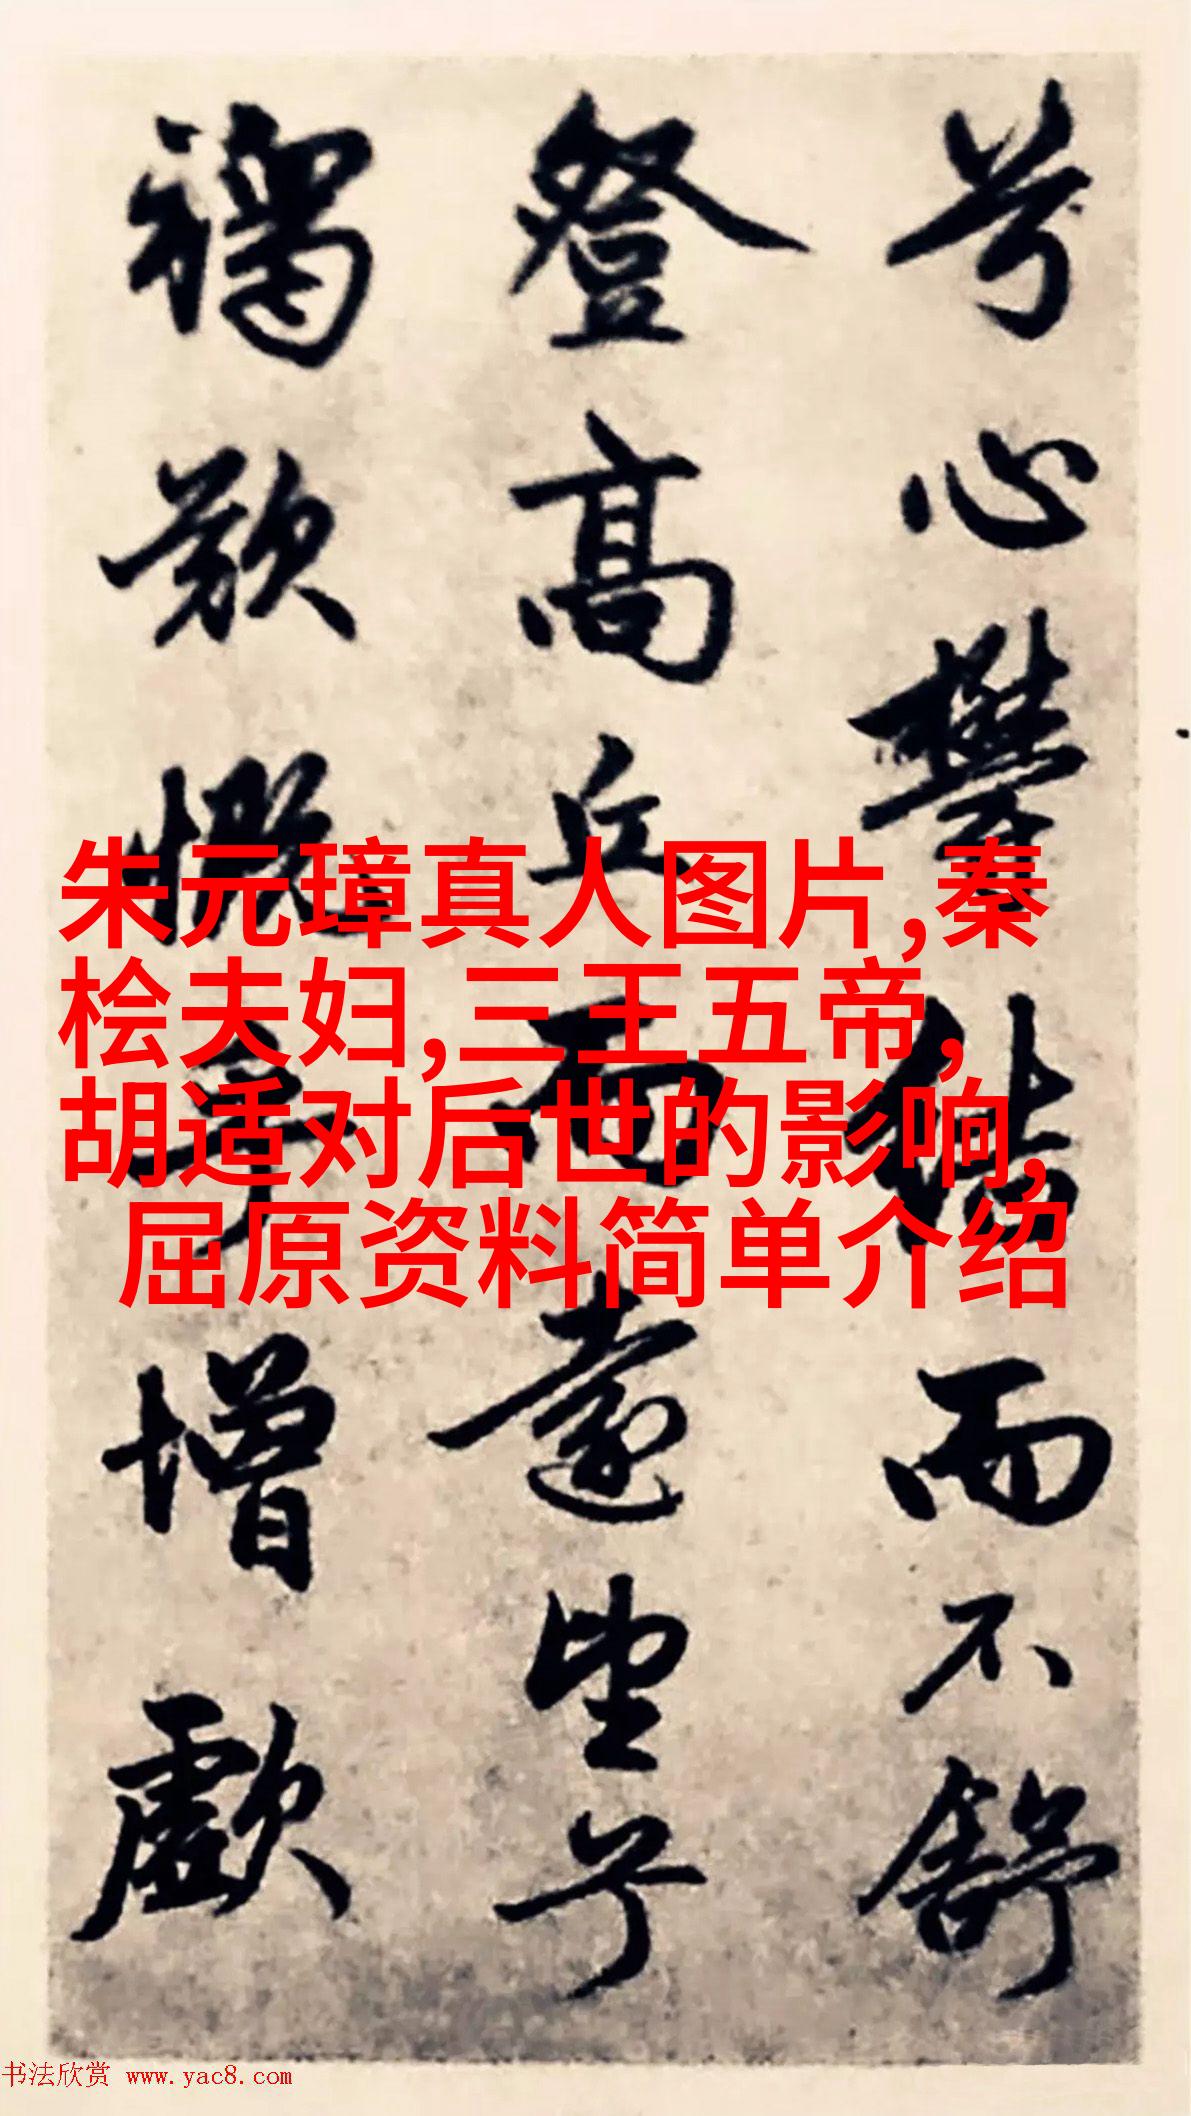 兮心鬱結而不舒
登高丘而遠望兮
增歔
朱元璋真人图片,秦
桧夫妇,三王五帝,
胡适对后世的影响,
屈原资料简单介绍
书法欣赏 www.yac8.com